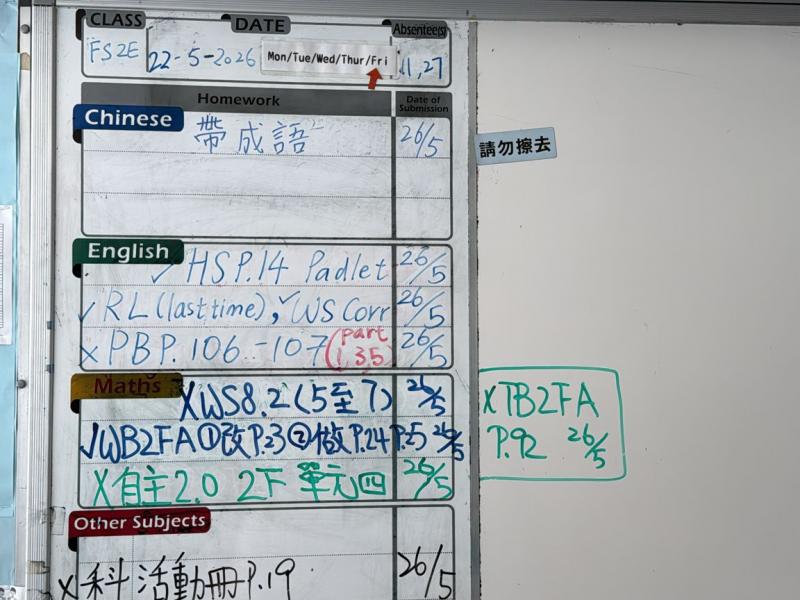 CLASS DATE Absentee(s)
FS2E 22-5-2026 Mon/Tue/Wed/Thur/Fri 11,27
Homework Date of Submission
Chinese
帶成語 26/5
請勿擦去
English
✓HSP.14 Padlet 26/5
✓RL(last time), ✓WS Corr 26/5
×PBP.106-107(part 1,3,5) 26/5
Maths
×WS8.2(5至7) 26/5
✓WB2FA①改P.23②做P.24 P.25 26/5
×自主2.0 2下 單元四 26/5
×TB2FA
P.92 26/5
Other Subjects
×科活動冊P.19 26/5